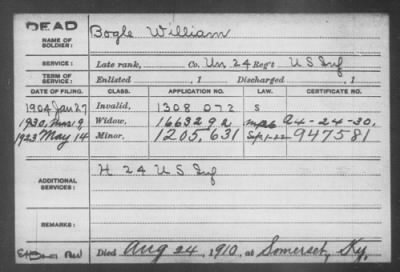 DEAD
NAME OF SOLDIER: Bogle William
SERVICE: Late rank, Co. Un. 24 Reg't U S Inf
TERM OF SERVICE: Enlisted , 1 Discharged , 1
DATE OF FILING. CLASS. APPLICATION NO. LAW. CERTIFICATE NO.
1904 Jan 27 Invalid, 1308 072 S
1930, Mar 9 Widow, 1663292 a-24-30,
1923 May 14 Minor, 1205,631 947581
ADDITIONAL SERVICES: H 24 U S Inf
REMARKS:
Died Aug 24, 1910, at Somerset, Ky,